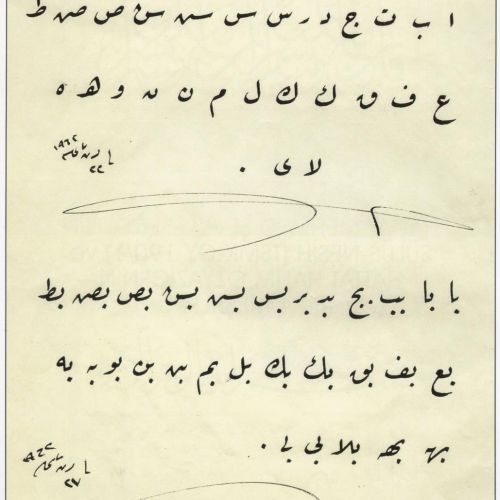 ا ب ت ج د ر س س س س ص ص ط
ع ف ق ك ك ل م ن ن و ه ه
لا ى .
٢٢
با با بب بج بد بر بس بس بس بص بص بط
بع بف بق بك بك بل بم بن بن بو به به
به به بلا بى بى .
٢٧